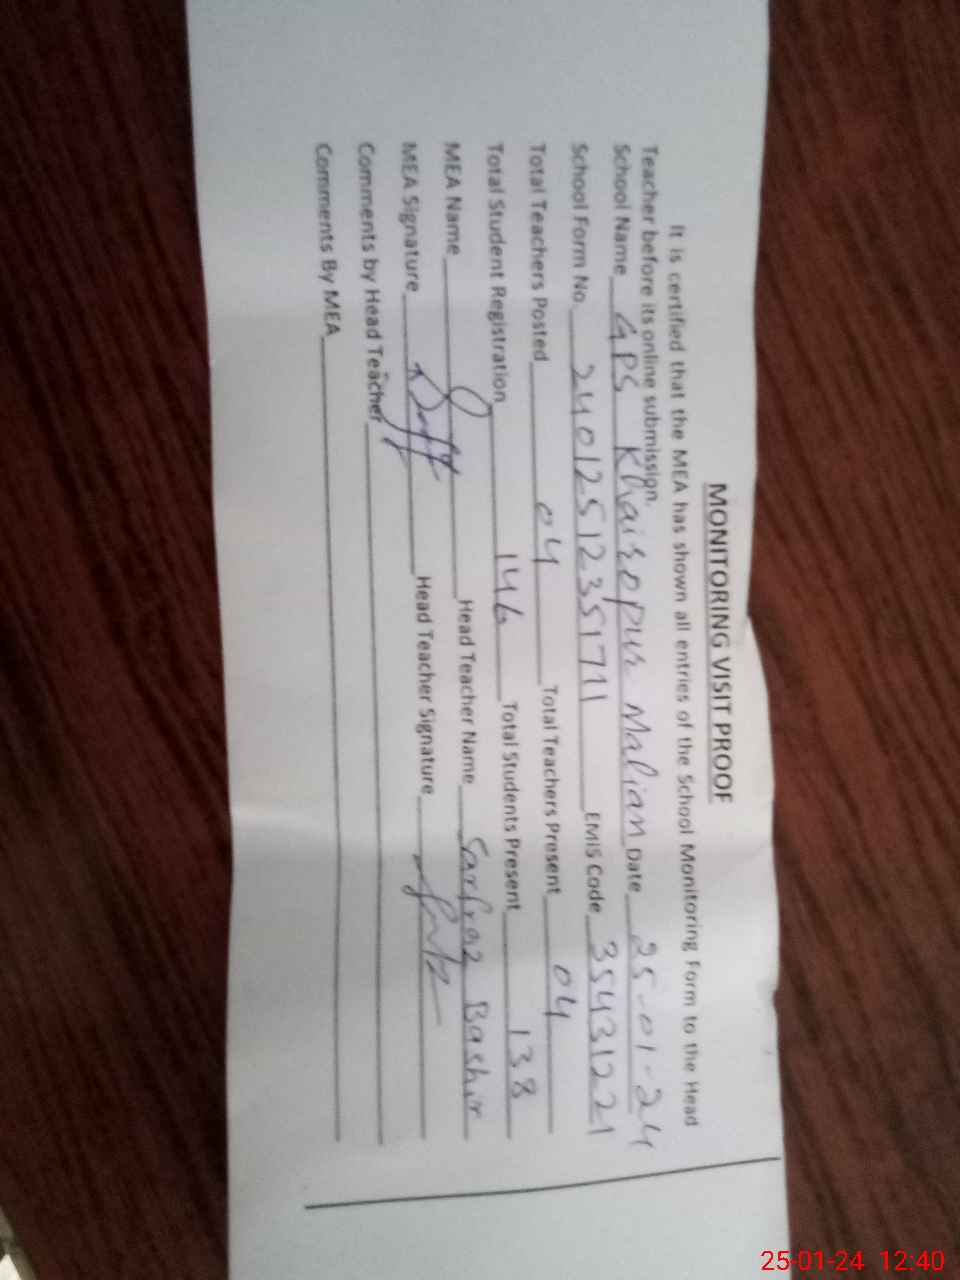 MONITORING VISIT PROOF
It is certified that the MEA has shown all entries of the School Monitoring Form to the Head
Teacher before its online submission.
School Name GPS Khairopur Malian Date 25-01-24
School Form No. 24012512351711 EMIS Code 35431221
Total Teachers Posted 04 Total Teachers Present 04
Total Student Registration 146 Total Students Present 138
MEA Name Head Teacher Name Sarfraz Bashir
MEA Signature Head Teacher Signature
Comments by Head Teacher
Comments By MEA
25-01-24 12:40